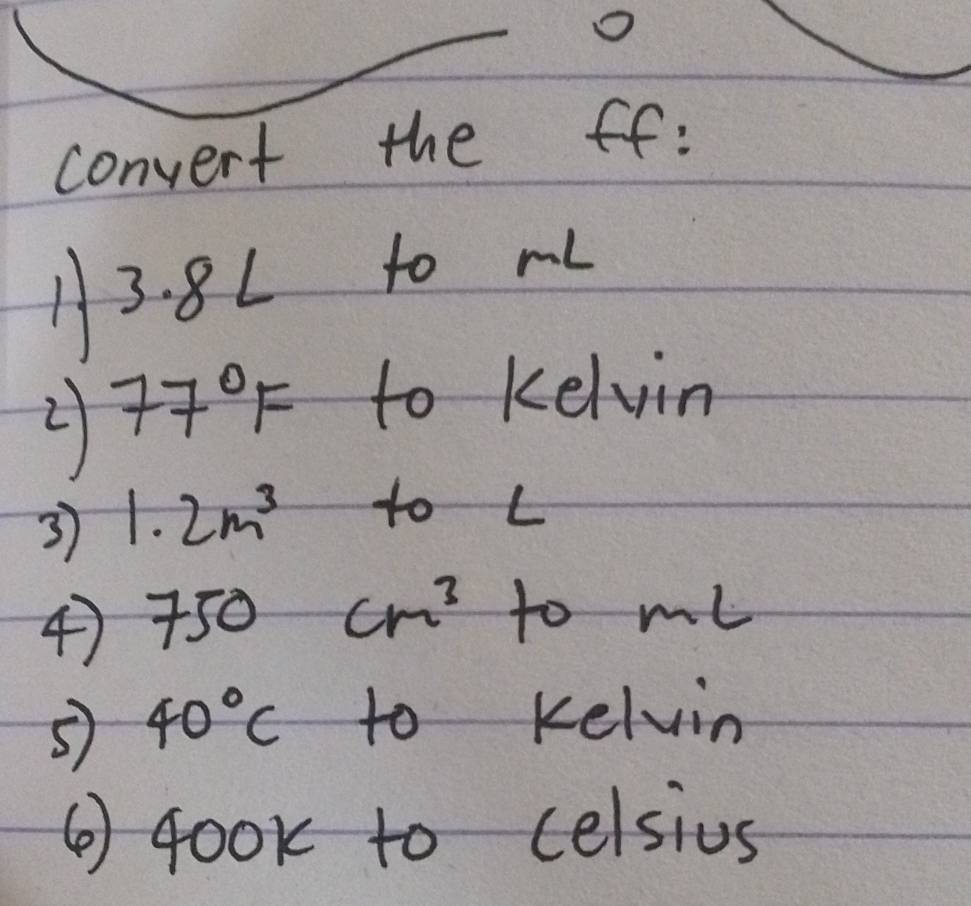 convert the ff:
1) 3.8L to mL
2) 77°F to Kelvin
3) 1.2m³ to L
4) 750 cm³ to mL
5) 40°C to Kelvin
6) 400K to Celsius